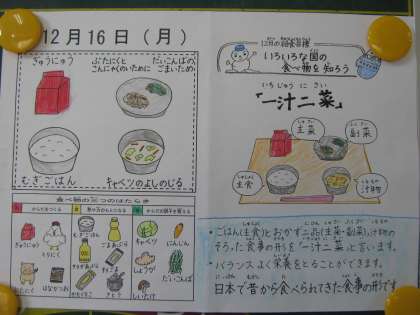 12月16日（月）
ぎゅうにゅう
ぶたにくと
こんにゃくのいために
だいこんばの
ごまいため
むぎごはん
キャベツのよしのじる
食べ物の三つのはたらき
12月の給食目標
いろいろな国の
食べ物を知ろう
いちじゅうにさい
「一汁二菜」
主菜
副菜
主食
汁物
・ごはん(主食)とおかず二品(主菜・副菜)、汁物の
そろった食事の形を「一汁二菜」と言います。
・バランスよく栄養をとることができます。
日本で昔から食べられてきた食事の形です
ぎゅうにゅう
とりにく
はなかつお
むぎごはん
ごまあぶら
さとう
キャベツ
にんじん
しょうが
だいこんば
しいたけ